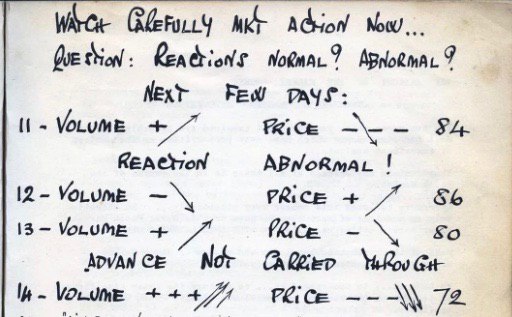 WATCH CAREFULLY MKT ACTION NOW...
QUESTION: REACTIONS NORMAL? ABNORMAL?
NEXT FEW DAYS:
11 - VOLUME + ↗ PRICE - - - ↘ 84
REACTION ABNORMAL!
12 - VOLUME - ↘ PRICE + ↗ 86
13 - VOLUME + ↗ PRICE - ↘ 80
ADVANCE NOT CARRIED THROUGH
14 - VOLUME + + + ↗↗↗ PRICE - - - ↓↓↓ 72